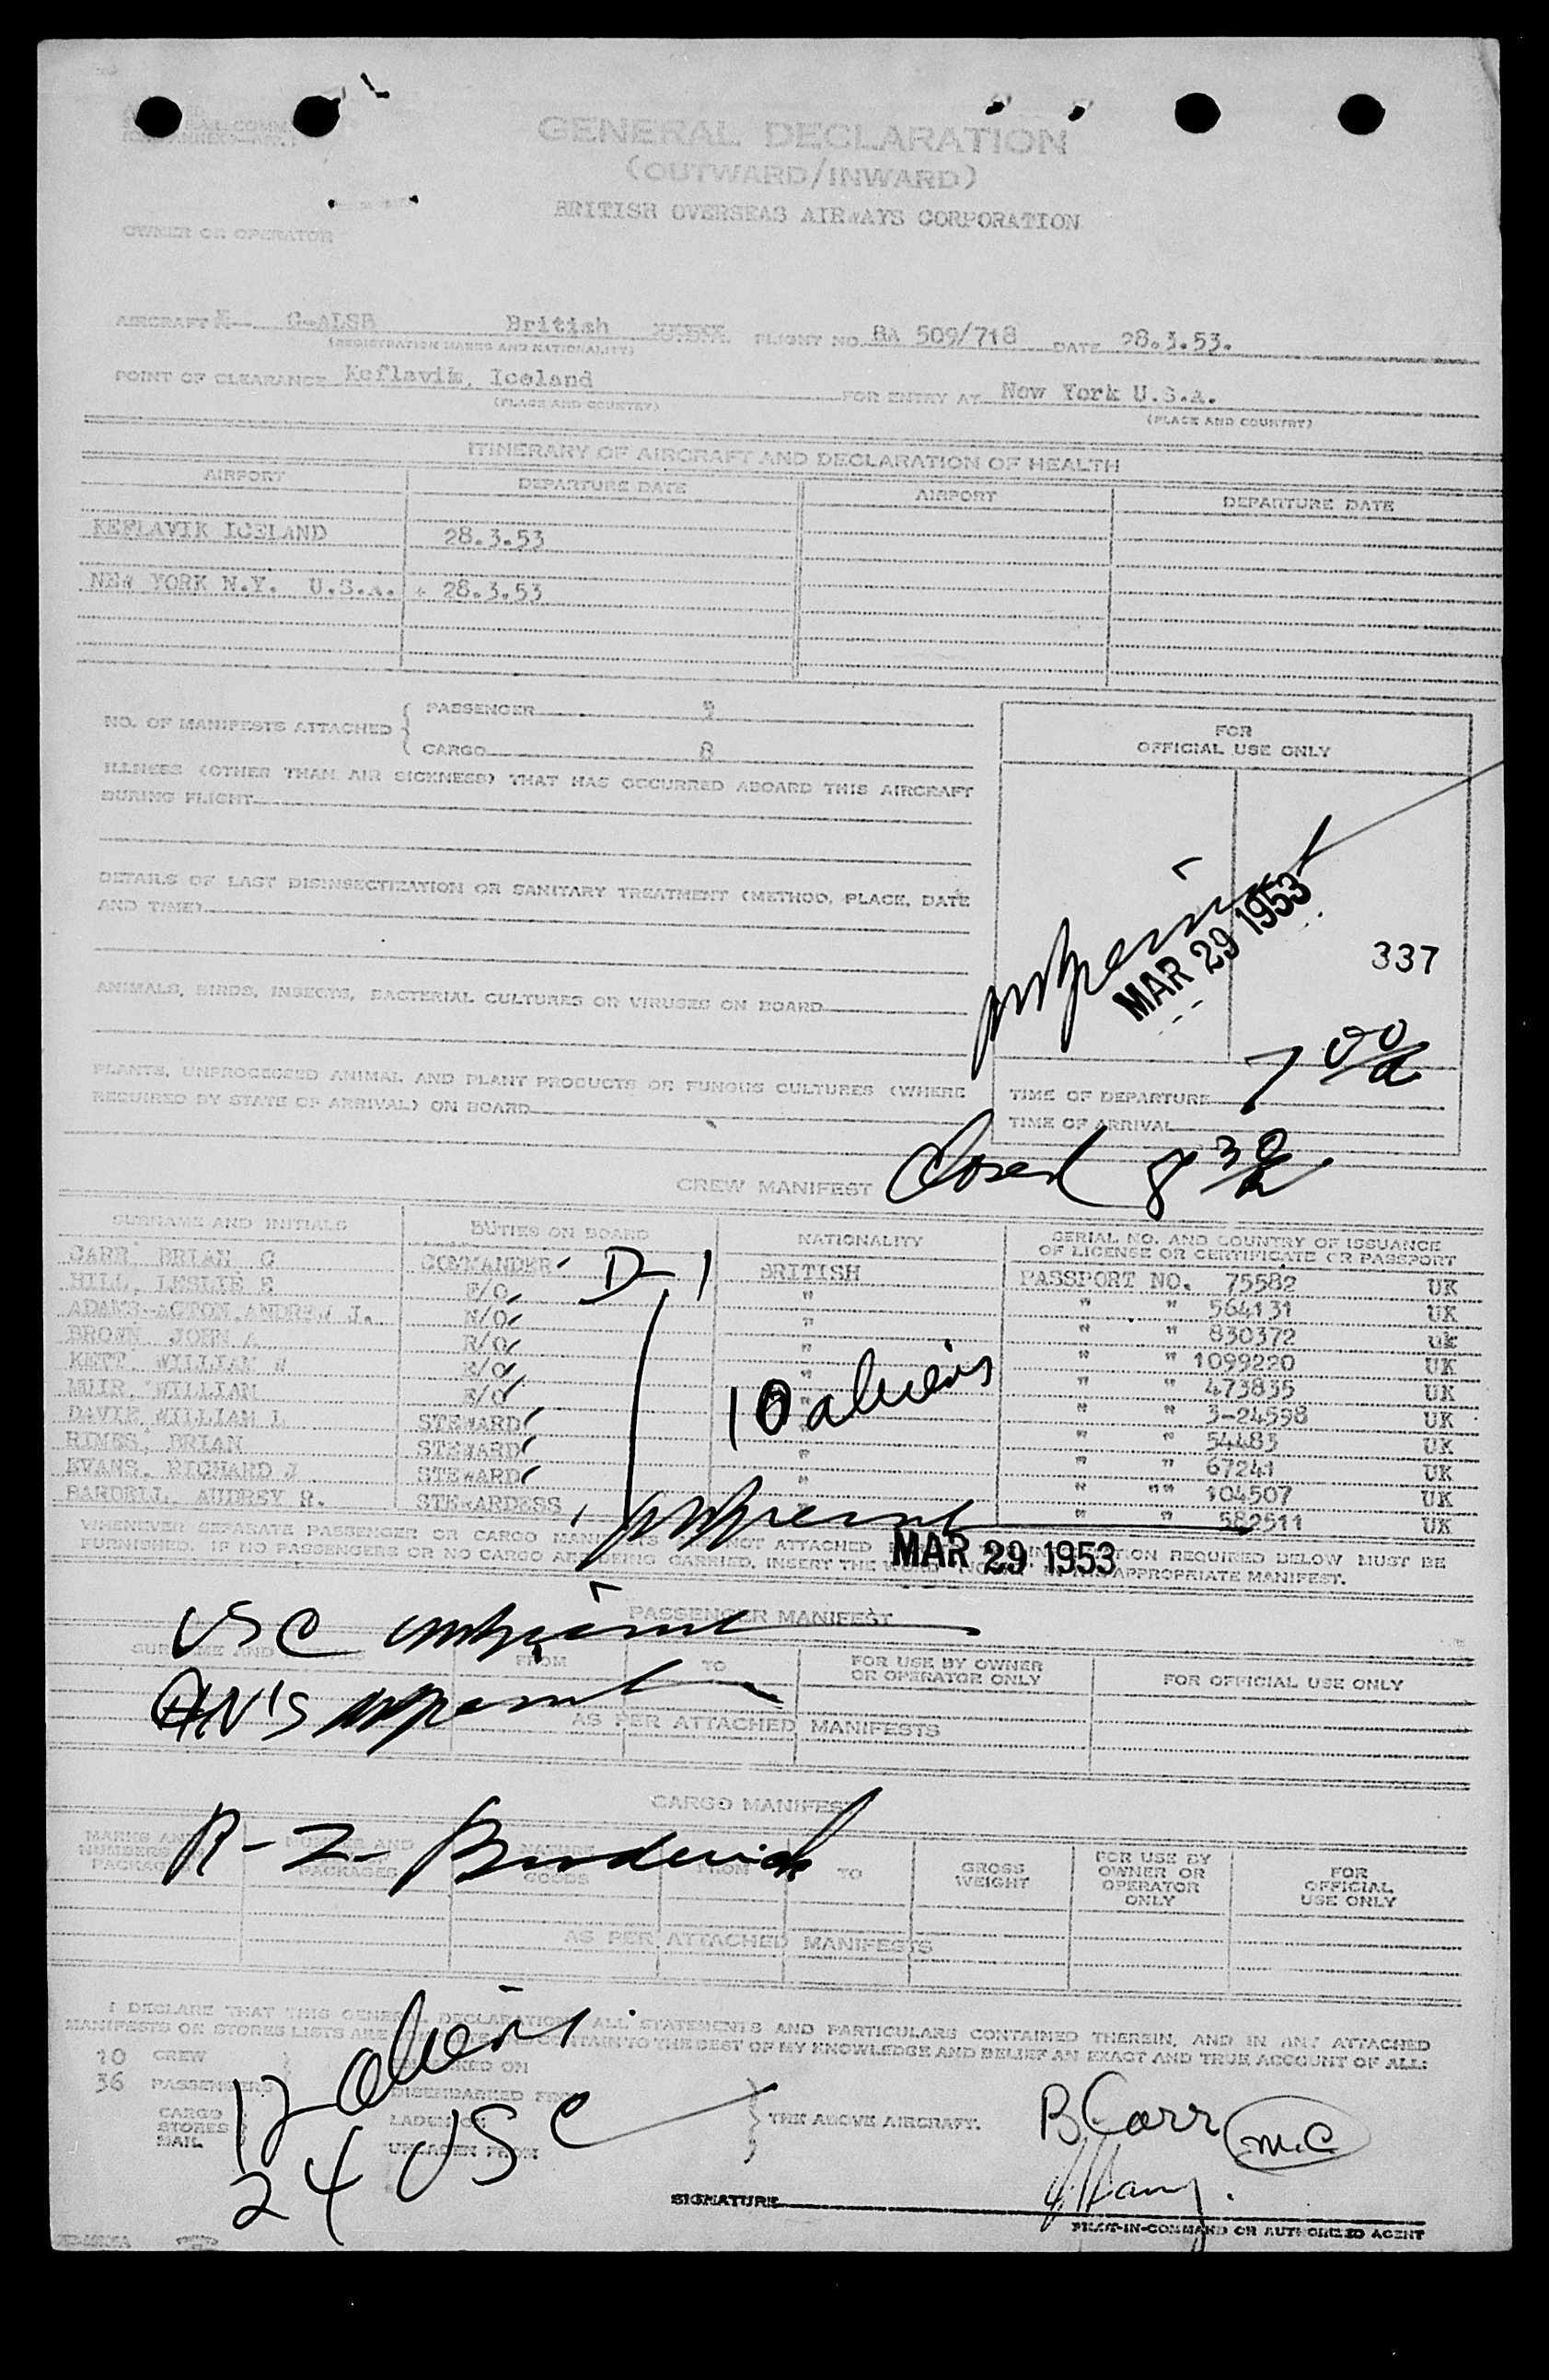 GENERAL DECLARATION
(OUTWARD/INWARD)
BRITISH OVERSEAS AIRWAYS CORPORATION
OWNER OR OPERATOR
AIRCRAFT G-ALSB British FLIGHT NO. BA 509/718 DATE 28.3.53.
(REGISTRATION MARKS AND NATIONALITY)
POINT OF CLEARANCE Keflavik, Iceland FOR ENTRY AT New York U.S.A.
(PLACE AND COUNTRY) (PLACE AND COUNTRY)
ITINERARY OF AIRCRAFT AND DECLARATION OF HEALTH
AIRPORT DEPARTURE DATE AIRPORT DEPARTURE DATE
KEFLAVIK ICELAND 28.3.53
NEW YORK N.Y. U.S.A. 28.3.53
NO. OF MANIFESTS ATTACHED PASSENGER
CARGO 8
FOR
OFFICIAL USE ONLY
ILLNESS (OTHER THAN AIR SICKNESS) THAT HAS OCCURRED ABOARD THIS AIRCRAFT
DURING FLIGHT
DETAILS OF LAST DISINSECTIZATION OR SANITARY TREATMENT (METHOD, PLACE, DATE
AND TIME)
MAR 29 1953
337
ANIMALS, BIRDS, INSECTS, BACTERIAL CULTURES OR VIRUSES ON BOARD
PLANTS, UNPROCESSED ANIMAL AND PLANT PRODUCTS OR FUNGUS CULTURES (WHERE
REQUIRED BY STATE OF ARRIVAL) ON BOARD
TIME OF DEPARTURE 7 00/a
TIME OF ARRIVAL
CREW MANIFEST Closed 8 30/a
SURNAME AND INITIALS DUTIES ON BOARD NATIONALITY SERIAL NO. AND COUNTRY OF ISSUANCE
OF LICENSE OR CERTIFICATE OR PASSPORT
CARR BRIAN G COMMANDER D-1 BRITISH PASSPORT NO. 75582 UK
HILL, LESLIE E F/O " " " 564131 UK
ADAMS-ACTON, ANDREW J. N/O " " " 830372 uk
BROWN JOHN A R/O " " " 1099220 UK
KETT, WILLIAM W E/O " " " 473835 UK
MUIR, WILLIAM E/O " " " 3-24598 UK
DAVIE WILLIAM L STEWARD " " " 54483 UK
HIMES, BRIAN STEWARD " " " 67241 UK
EVANS, RICHARD J STEWARD " " " 104507 UK
BARDELL, AUDREY R. STEWARDESS " " " 582511 UK
10 aliens
WHENEVER SEPARATE PASSENGER OR CARGO MANIFESTS NOT ATTACHED REQUIRED BELOW MUST BE
FURNISHED. IF NO PASSENGERS OR NO CARGO ARE BEING CARRIED, INSERT THE WORD APPROPRIATE MANIFEST.
MAR 29 1953
PASSENGER MANIFEST
USC
SURNAME AND FROM TO FOR USE BY OWNER
OR OPERATOR ONLY FOR OFFICIAL USE ONLY
AS PER ATTACHED MANIFESTS
CARGO MANIFEST
R-2 Broderick
MARKS AND
NUMBERS
PACKAGES NUMBER AND
PACKAGES NATURE
GOODS FROM TO GROSS
WEIGHT FOR USE BY
OWNER OR
OPERATOR
ONLY FOR
OFFICIAL
USE ONLY
AS PER ATTACHED MANIFESTS
I DECLARE THAT THIS GENERAL DECLARATION ALL STATEMENTS AND PARTICULARS CONTAINED THEREIN, AND IN ANY ATTACHED
MANIFESTS OR STORES LISTS ARE TO THE BEST OF MY KNOWLEDGE AND BELIEF AN EXACT AND TRUE ACCOUNT OF ALL:
10 CREW
36 PASSENGERS DISEMBARKED FROM
CARGO
STORES
MAIL
LADEN ON THE ABOVE AIRCRAFT.
UNLADEN FROM
12 aliens
24 USC
B Carr m.c.
SIGNATURE
PILOT-IN-COMMAND OR AUTHORIZED AGENT